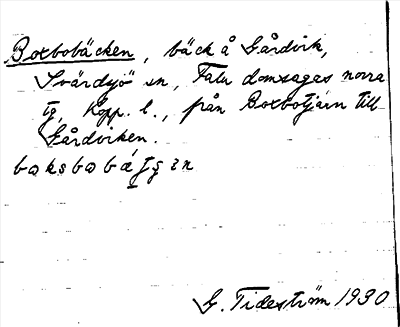 Boxbobäcken, bäck å Gårdvik,
Svärdsjö sn, Falu domsagas norra
tg, Kopp. l., från Boxbotjärn till
Gårdviken.
G. Tideström 1930